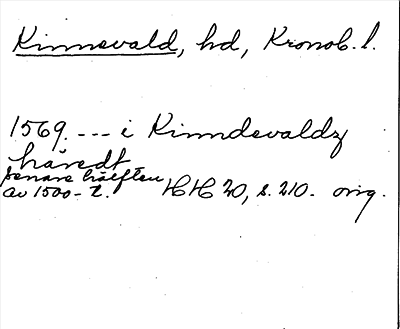 Kinnevald, hd, Kronob. l.
1569. --- i Kinndevaldz
häredt
senare hälften
av 1500-t. HH 20, s. 210. orig.